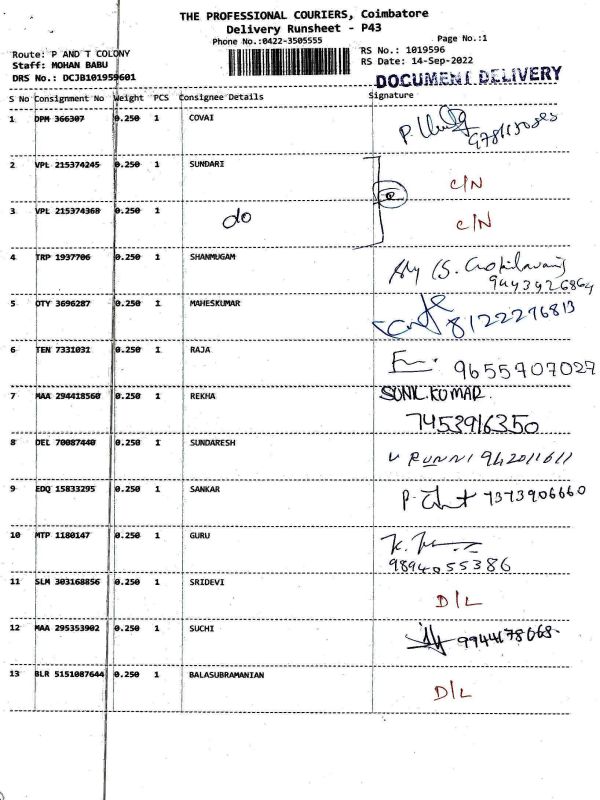 THE PROFESSIONAL COURIERS, Coimbatore
Delivery Runsheet - P43
Phone No.:0422-3505555
Page No.:1
Route: P AND T COLONY
RS No.: 1019596
Staff: MOHAN BABU
RS Date: 14-Sep-2022
DRS No.: DCJB101959601
DOCUMENT DELIVERY
S No Consignment No Weight PCS Consignee Details Signature
1 DPM 366307 0.250 1 COVAI P.
2 VPL 215374245 0.250 1 SUNDARI C/N
3 VPL 215374360 0.250 1 do C/N
4 TRP 1937706 0.250 1 SHANMUGAM
9443926864
5 OTY 3696287 0.250 1 MAHESKUMAR 8122276813
6 TEN 7331031 0.250 1 RAJA 9655907027
7 MAA 294418560 0.250 1 REKHA SUNIL.KUMAR.
7453916350
8 DEL 70087440 0.250 1 SUNDARESH 942011611
9 EDQ 15833295 0.250 1 SANKAR P. 7373906660
10 MTP 1180147 0.250 1 GURU K.
9894055386
11 SLM 303168856 0.250 1 SRIDEVI D/L
12 MAA 295353902 0.250 1 SUCHI 9944178068
13 BLR 5151087644 0.250 1 BALASUBRAMANIAN D/L